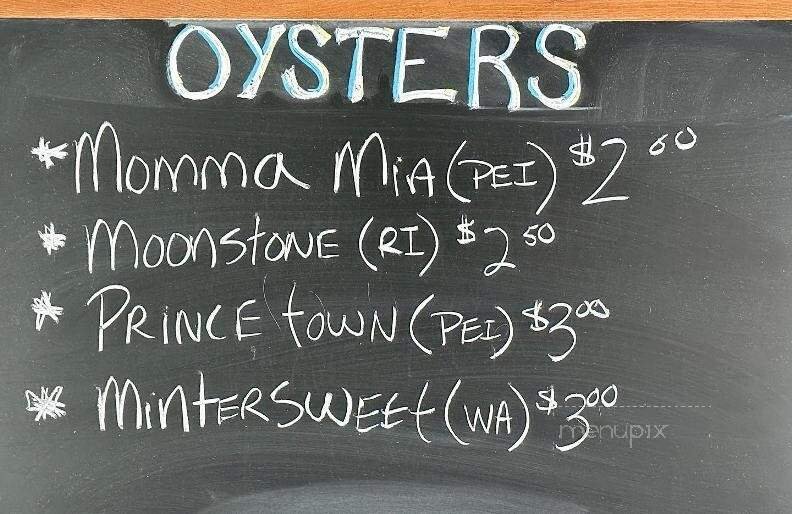 OYSTERS
* Momma MiA (PEI) $2 00
* MoonstoNE (RI) $2 50
* PRINCE tOWN (PEI) $3 00
* MintERSWEEt (WA) $3 00
menupix